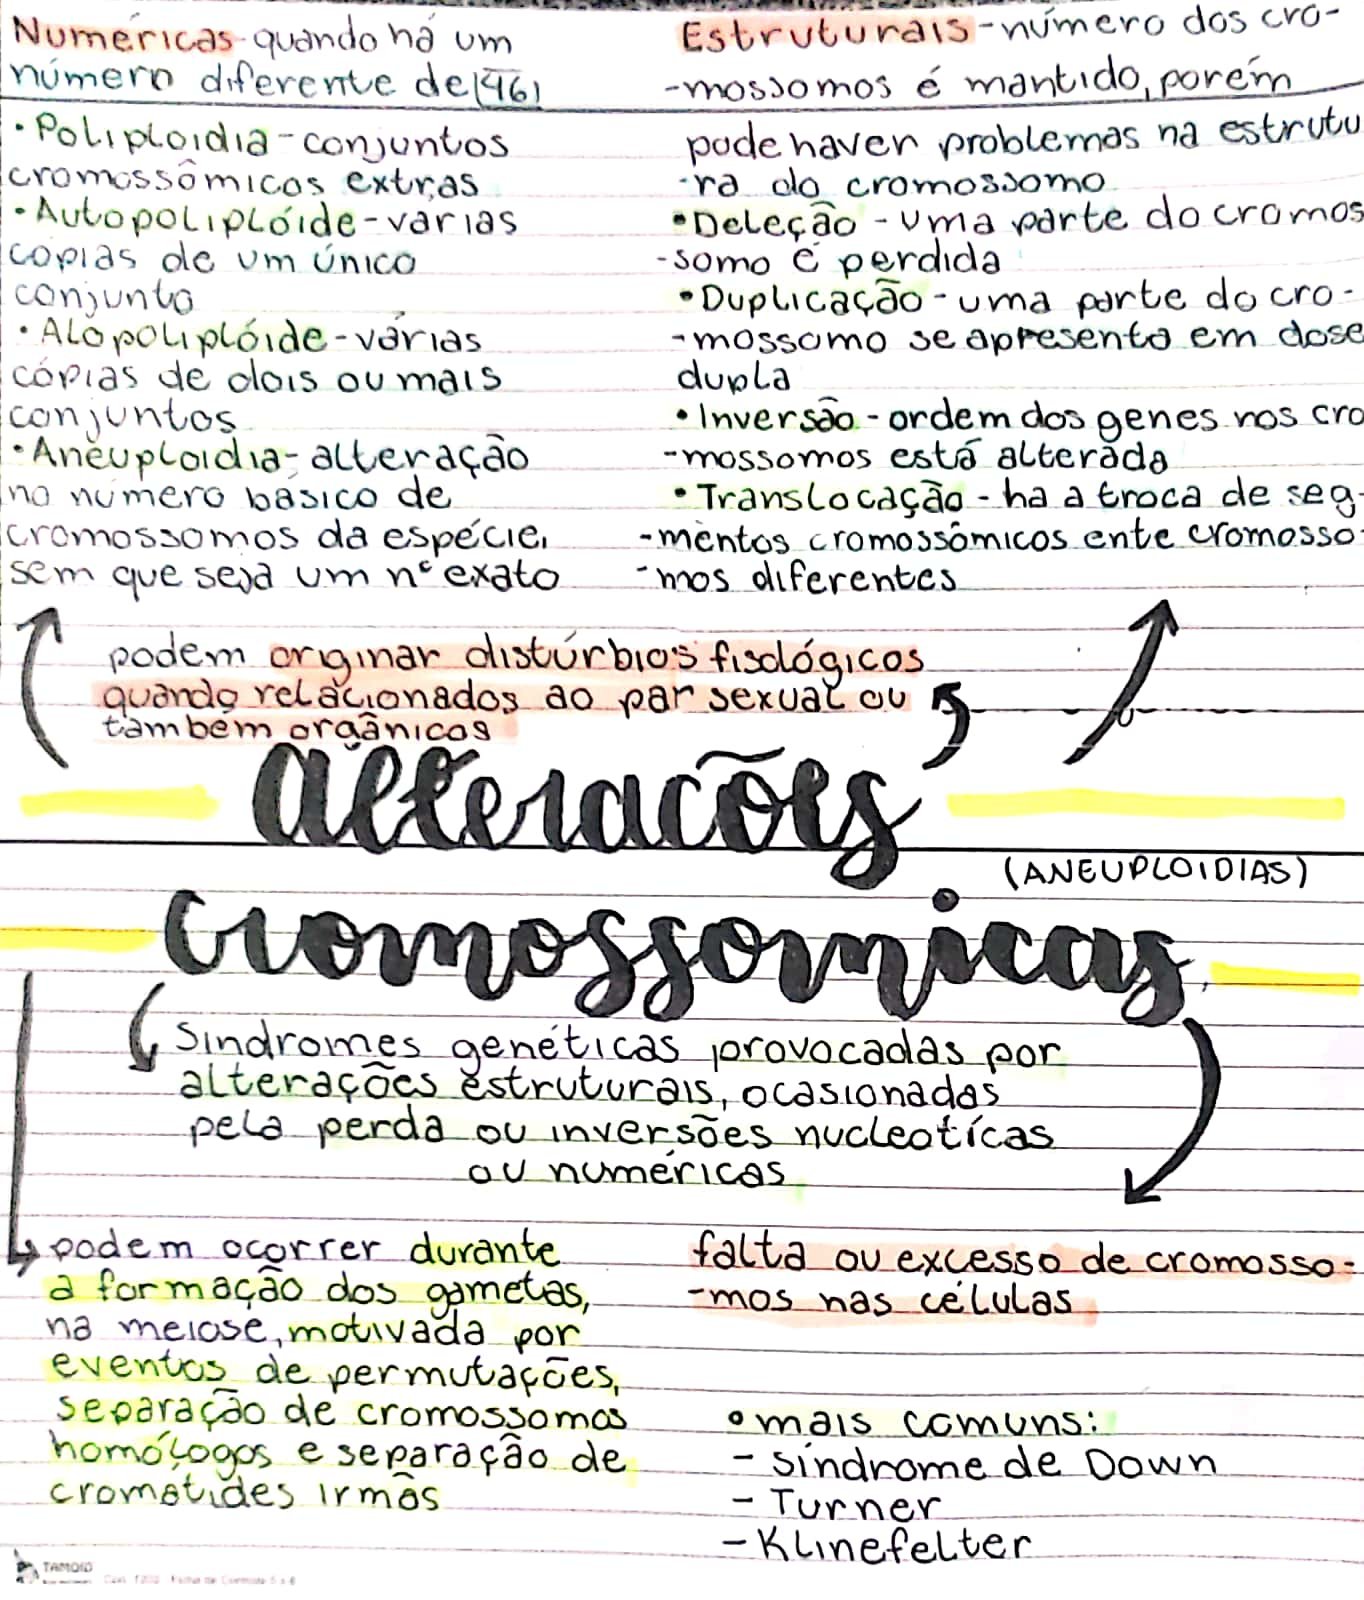 Numéricas - quando há um
número diferente de 46
• Poliploidia - conjuntos
cromossômicos extras
• Autopoliplóide - várias
cópias de um único
conjunto
• Alopoliplóide - várias
cópias de dois ou mais
conjuntos
• Aneuploidia - alteração
no número básico de
cromossomos da espécie,
sem que seja um nº exato
Estruturais - número dos cro-
-mossomos é mantido, porém
pode haver problemas na estrutu
-ra do cromossomo
• Deleção - uma parte do cromos
-somo é perdida
• Duplicação - uma parte do cro-
-mossomo se apresenta em dose
dupla
• Inversão - ordem dos genes nos cro
-mossomos está alterada
• Translocação - ha a troca de seg-
-mentos cromossômicos ente cromosso-
-mos diferentes
podem originar distúrbios fisológicos
quando relacionados ao par sexual ou
também orgânicos
alterações
(ANEUPLOIDIAS)
cromossomicas
Sindromes genéticas provocadas por
alterações estruturais, ocasionadas
pela perda ou inversões nucleotícas
ou numéricas
podem ocorrer durante
a formação dos gametas,
na meiose, motivada por
eventos de permutações,
separação de cromossomos
homólogos e separação de
cromátides irmãs
falta ou excesso de cromosso-
-mos nas células
• mais comuns:
- síndrome de Down
- Turner
- Klinefelter
TAMOIO